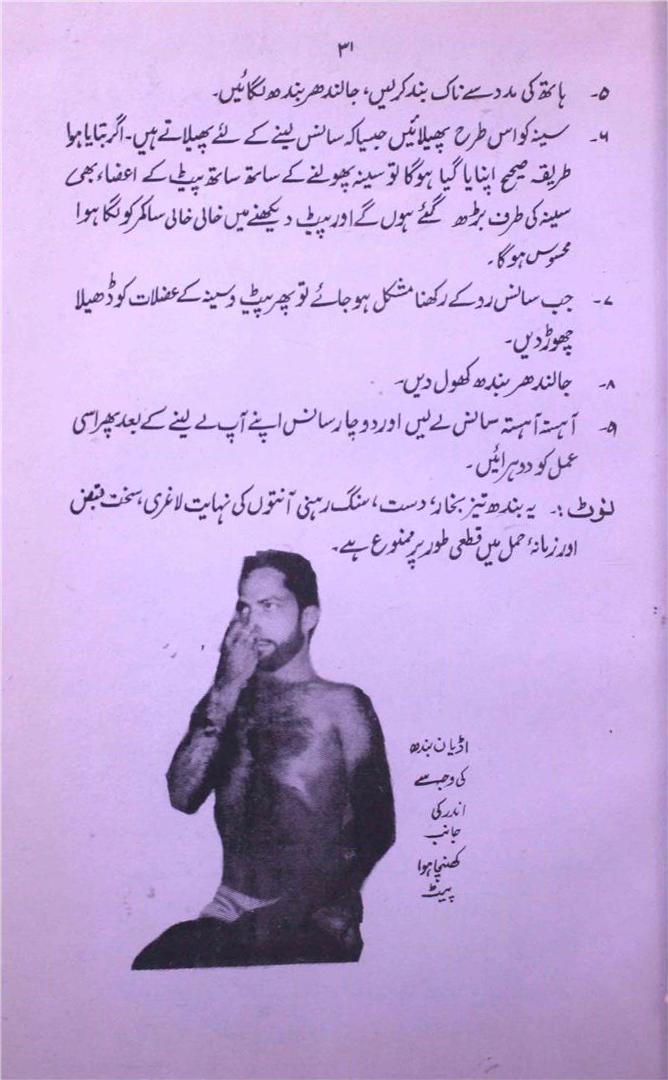 ۳۱
۵۔ ہاتھ کی مدد سے ناک بند کریں، جالندھر بندھ لگائیں۔
۶۔ سینہ کو اس طرح پھیلائیں جیسا کہ سانس لینے کے لئے پھیلاتے ہیں۔ اگر بتایا ہوا
طریقہ صحیح اپنایا گیا ہوگا تو سینہ پھولنے کے ساتھ ساتھ پیٹ کے اعضاء بھی
سینہ کی طرف بڑھ گئے ہوں گے اور پیٹ دیکھنے میں خالی خالی سا کمر کو لگا ہوا
محسوس ہوگا۔
۷۔ جب سانس روکے رکھنا مشکل ہو جائے تو پھر پیٹ و سینہ کے عضلات کو ڈھیلا
چھوڑ دیں۔
۸۔ جالندھر بندھ کھول دیں۔
۹۔ آہستہ آہستہ سانس لے لیں اور دو چار سانس اپنے آپ لے لینے کے بعد پھر اسی
عمل کو دوہرائیں۔
نوٹ:۔ یہ بندھ تیز بخار، دست، سنگ رہنی آنتوں کی نہایت لاغری، سخت قبض
اور زمانۂ حمل میں قطعی طور پر ممنوع ہے۔
اڈیان بندھ
کی وجہ سے
اندر کی
جانب
کھنچا ہوا
پیٹ